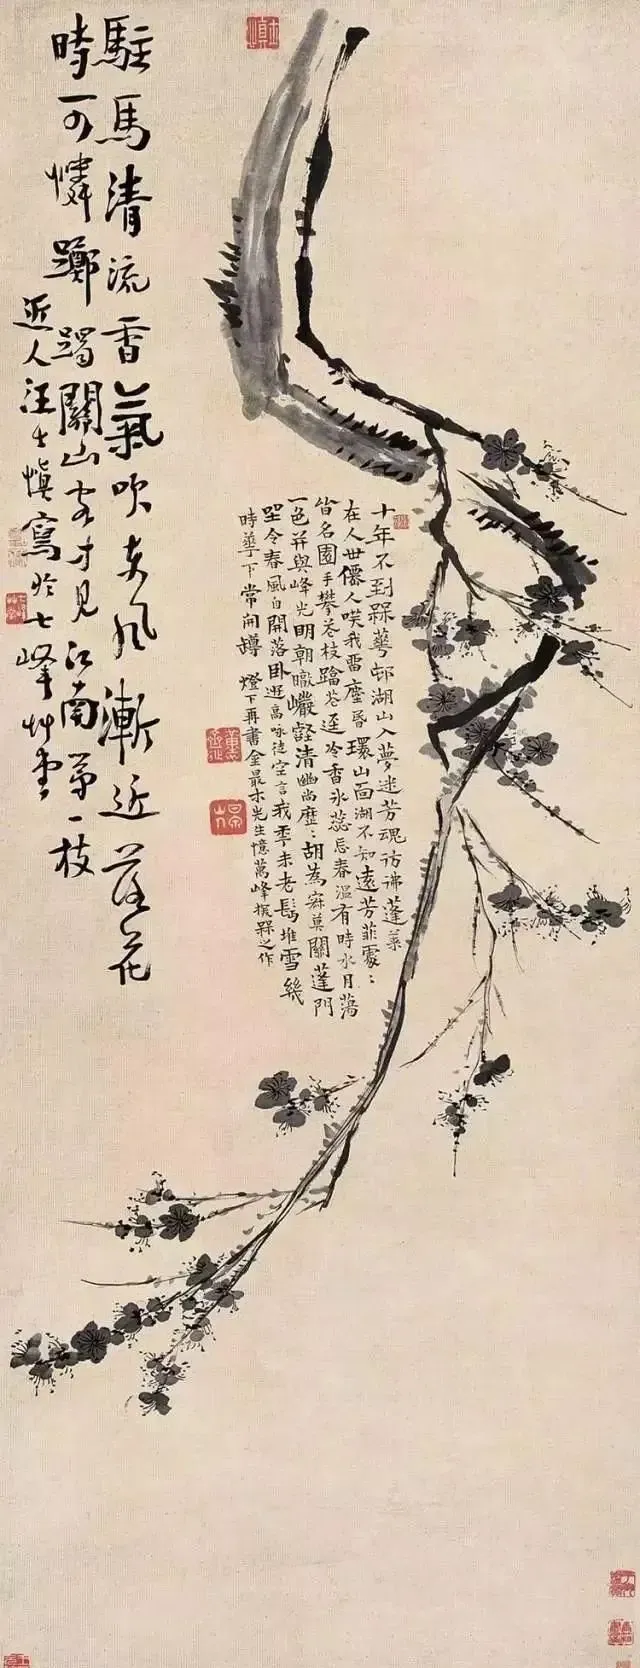 十年不到槑華邨湖山入夢迷芳魂彷彿蓬萊
在人世僊人我畱塵昏環山面湖不知遠芳菲處：
皆名園手攀花枝蹋花逕冷香氷蕊忘春溫有時水月蕩
一色并與峰光明朝暾巖壑清幽尚歷：胡為寂莫關蓬門
坐令春風自開落臥遊高咏徒空言我季未老鬢堆雪幾
時華下常開罇 燈下再書金最木先生憶萬峰探槑之作
駐馬清流香氣吹東風漸近落花
時可憐躑躅關山客才見江南第一枝
近人汪士慎寫於七峰草堂